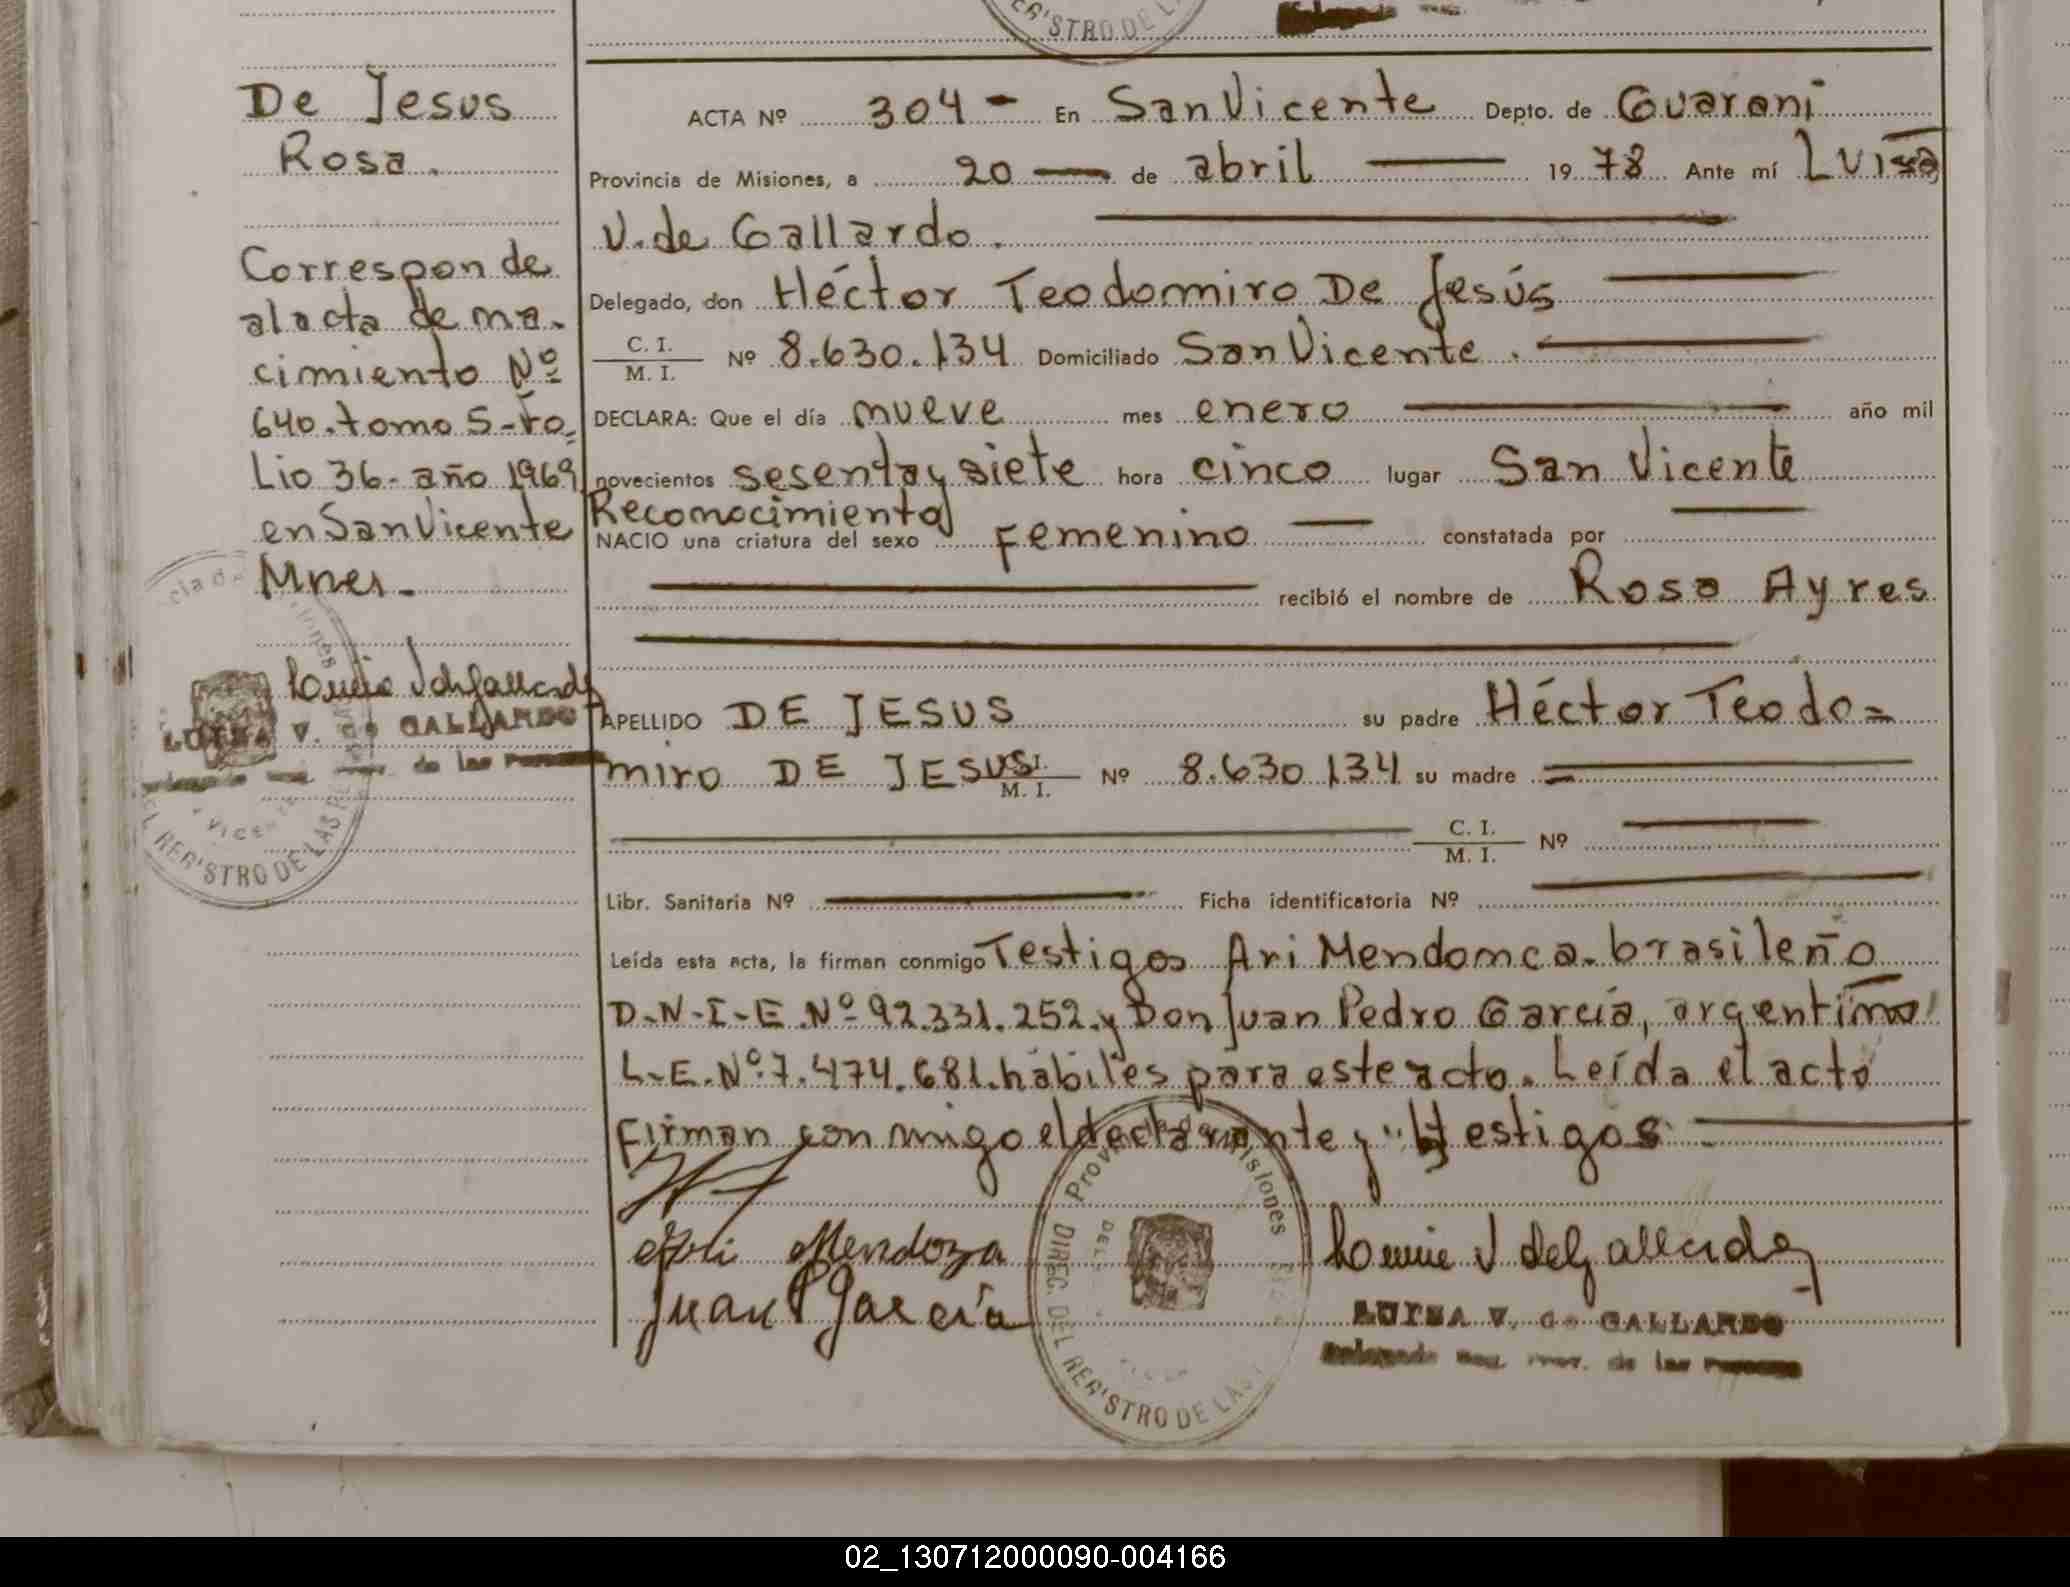 De Jesus
Rosa.
Corresponde
al acta de na-
cimiento Nº
640. tomo 5 - fo-
lio 36 - año 1969
en San Vicente
Mnes.
LUISA V. de GALLARDO
ACTA Nº 304 - En San Vicente Depto. de Guaraní
Provincia de Misiones, a 20 de abril 1978 Ante mí Luisa
V. de Gallardo.
Delegado, don Héctor Teodomiro De Jesús
C. I. / M. I. Nº 8.630.134 Domiciliado San Vicente.
DECLARA: Que el día nueve mes enero año mil
novecientos sesenta y siete hora cinco lugar San Vicente
Reconocimiento
NACIO una criatura del sexo Femenino constatada por
recibió el nombre de Rosa Ayres
APELLIDO DE JESUS su padre Héctor Teodo=
miro DE JESUS C. I. / M. I. Nº 8.630.134 su madre
C. I. / M. I. Nº
Libr. Sanitaria Nº Ficha identificatoria Nº
Leída esta acta, la firman conmigo Testigos Ari Mendomca. brasileño
D.N.I.E. Nº 92.331.252. y Don Juan Pedro García, argentino
L.E. Nº 7.474.681. hábiles para este acto. Leída el acto
Firman conmigo el declarante y testigos
Mendoza
Juan P García
Provincia de Misiones
DIREC. DEL REGISTRO DE LAS
LUISA V. de GALLARDO
02_130712000090-004166